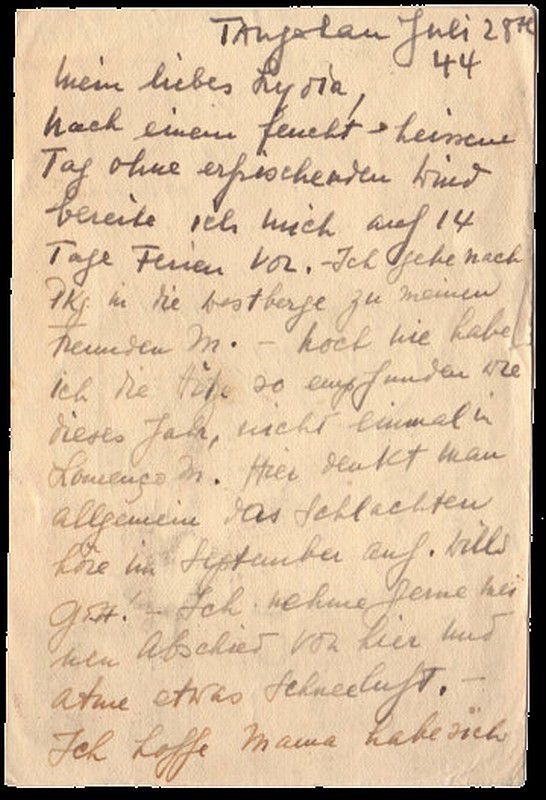 Tangolan Juli 28th
44
Mein liebes Lydia,
Nach einem feucht-heissen
Tag ohne erfrischenden Wind
bereite ich mich auf 14
Tage Ferien vor. - Ich gehe nach
Pkg in die Westberge zu meinen
Freunden M. - Noch nie habe
ich die Hitze so empfunden wie
dieses Jahr, nicht einmal in
Lorenzo M. Hier denkt man
allgemein das Schlachten
höre im September auf. Will's
Gott! - Ich nehme gerne mei
nen Abschied von hier und
atme etwas Schneeluft. -
Ich hoffe Mama habe sich